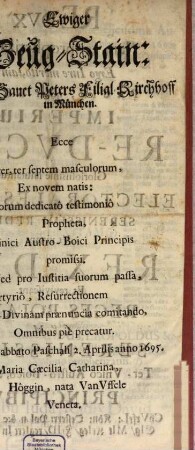 Ewiger
Zeüg-Stain:
Sanct Peters Filial-Kirchhoff
in München.
Ecce
ter, ter septem masculorum,
Ex novem natis:
orum dedicato testimoniō
Propheta,
inici Austro-Boici Principis
promissa.
ed pro Iustitia suorum passa,
rtyriō, Resurrectionem
Divinam prænuncia comitando,
Omnibus piè precatur.
abbato Paschali 2. Aprilis anno 1695.
Maria Cæcilia Catharina,
Höggin, nata VanVficle
Veneta.
Bayerische
Staatsbibliothek
München